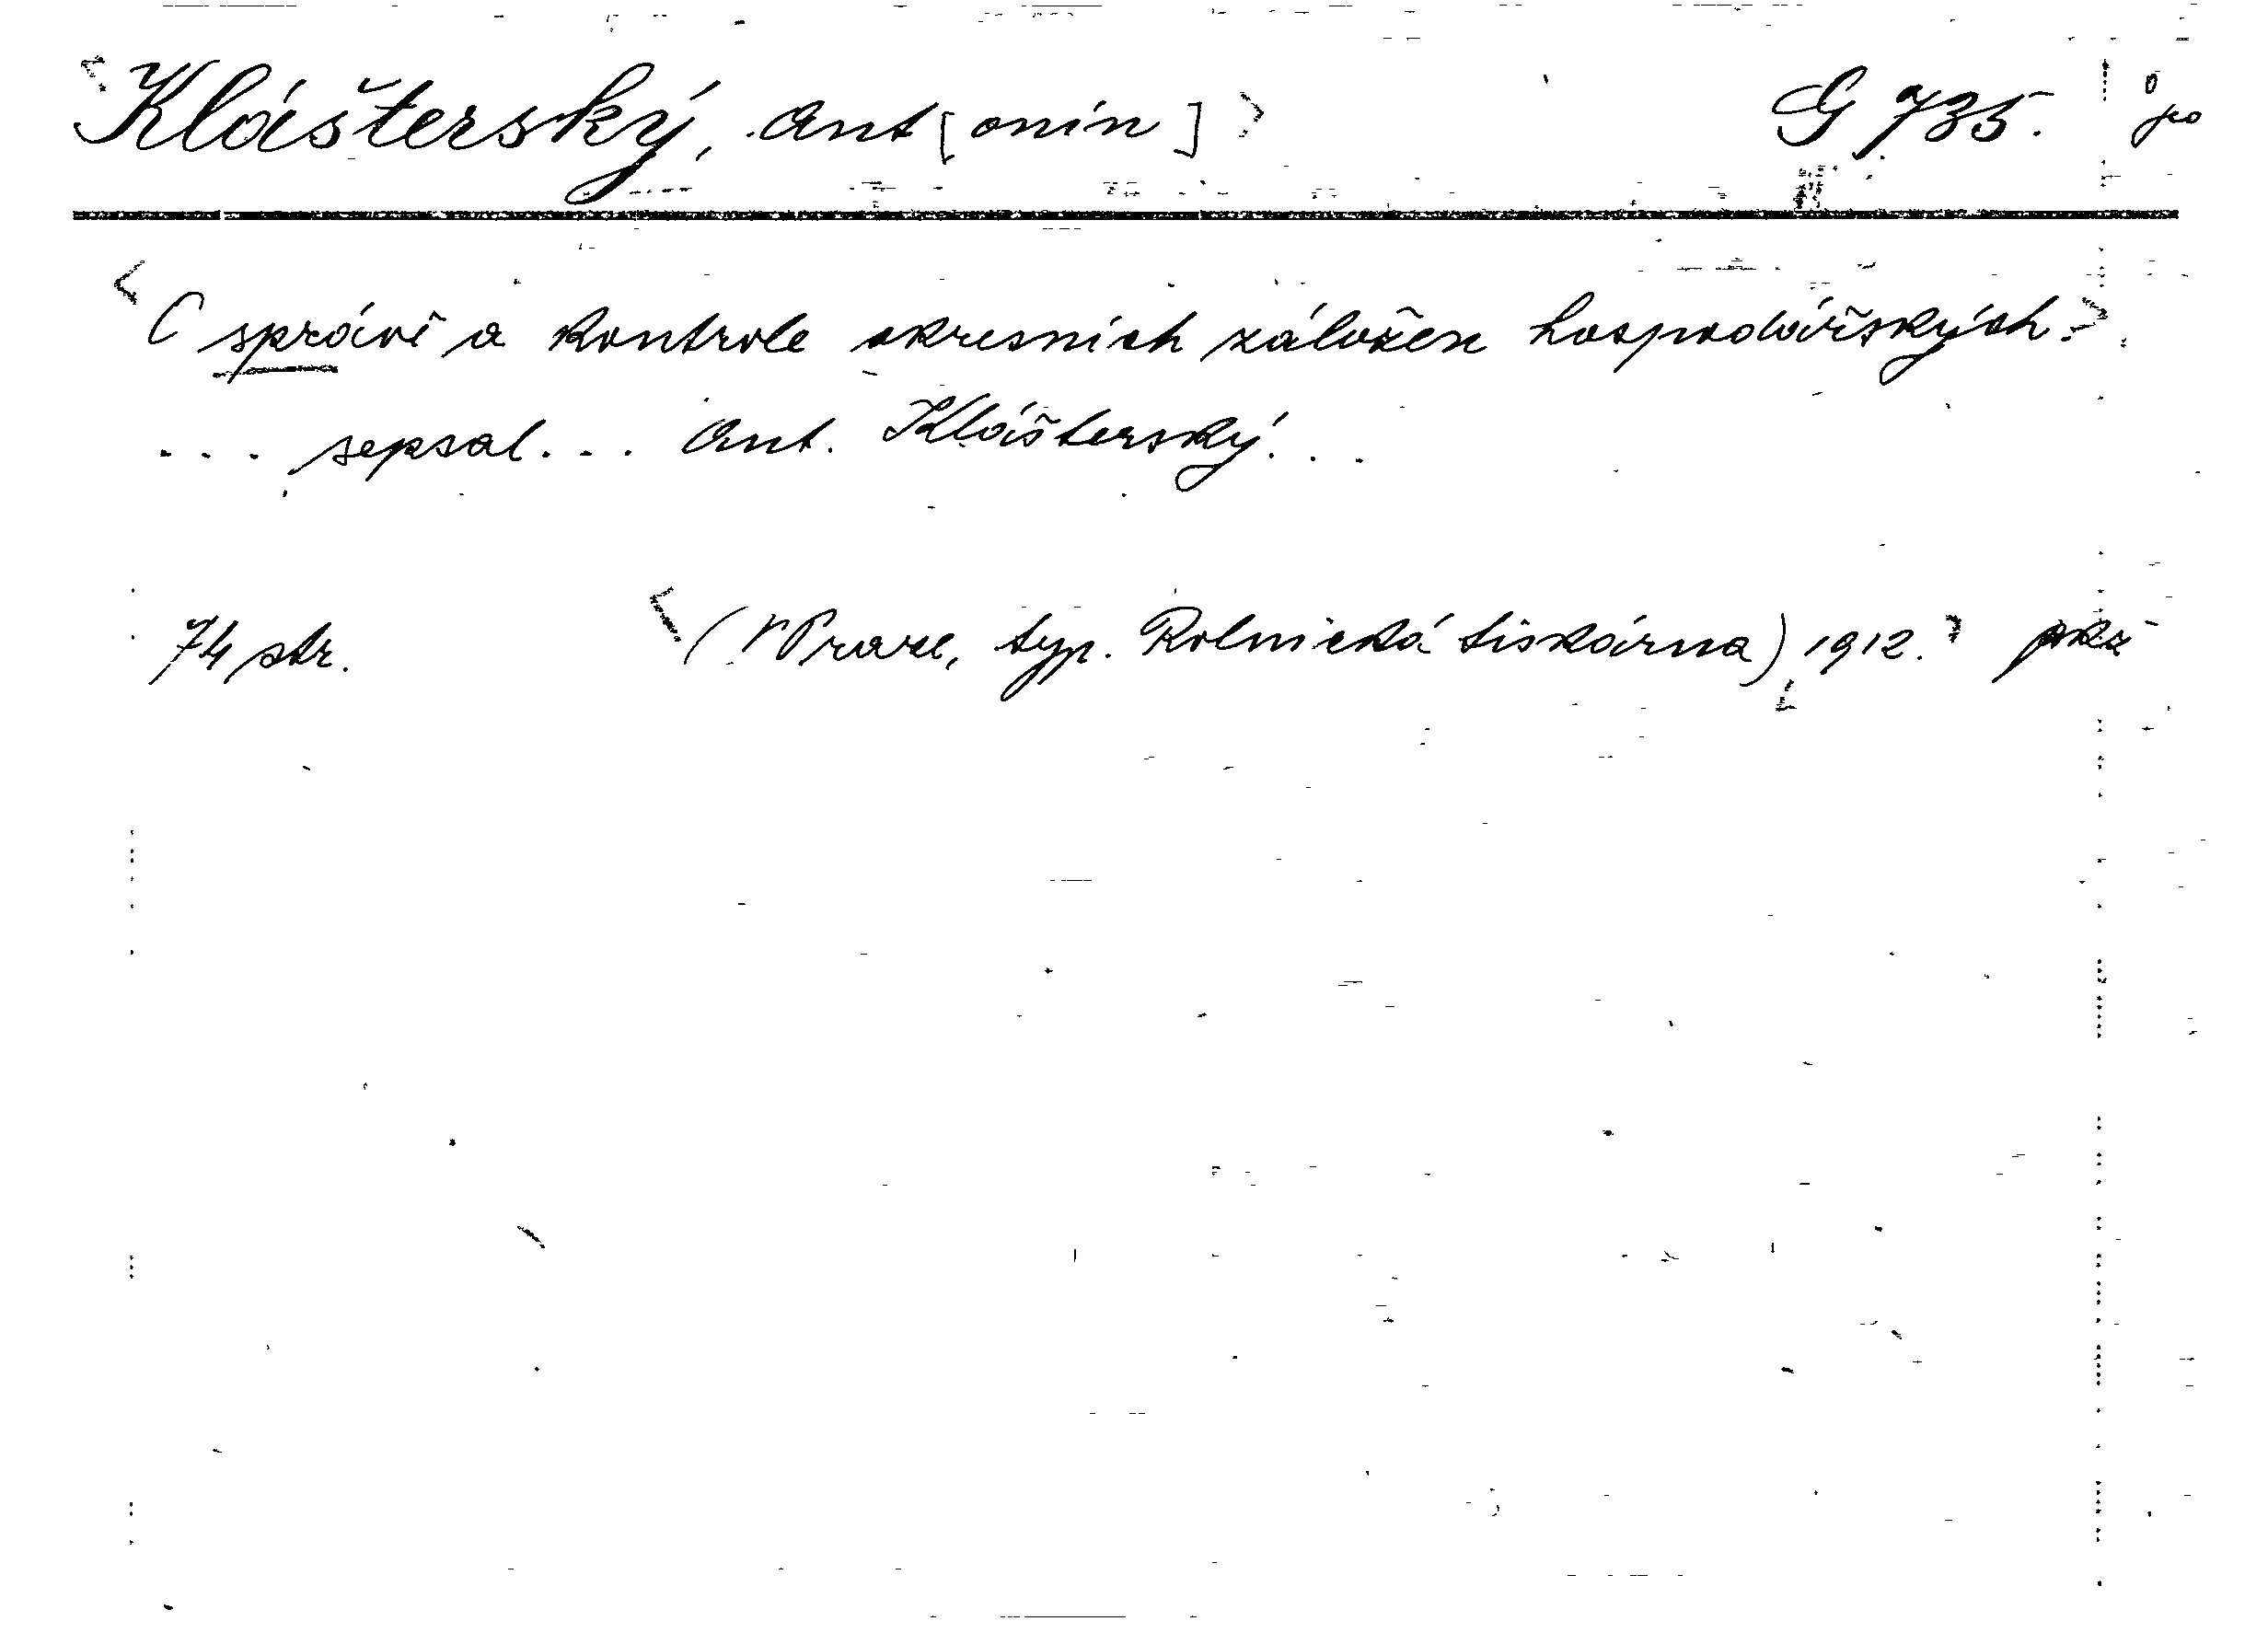 Klášterský, Ant[onín] G 735.
O správě a kontrole okresních záložen hospodářských.
... sepsal... Ant. Klášterský...
74 str. (V Praze, typ. Rolnická tiskárna) 1912.